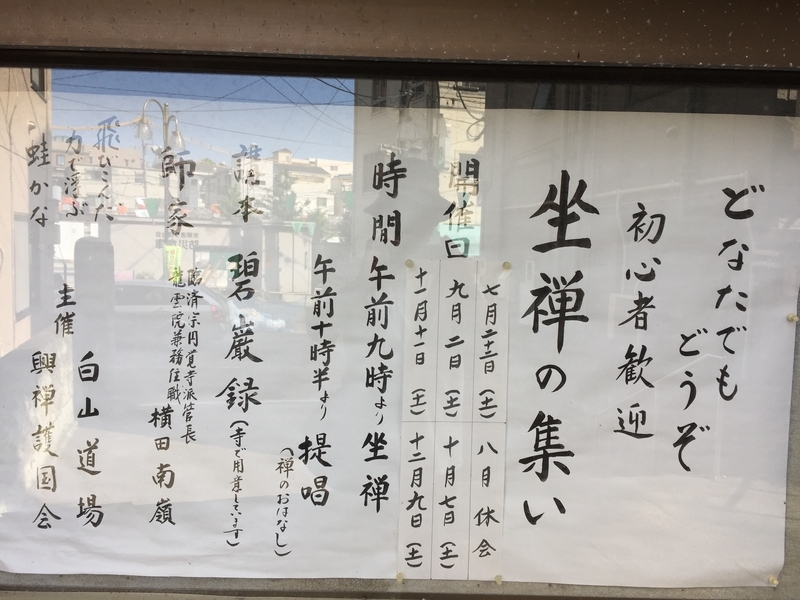 どなたでも
どうぞ
初心者歓迎
坐禅の集い
開催日
七月二十二日(土)
八月休会
九月二日(土)
十月七日(土)
十一月十一日(土)
十二月九日(土)
時間 午前九時より 坐禅
午前十時半より 提唱
(禅のおはなし)
講本 碧巌録(寺で用意しています)
師家 臨済宗円覚寺派管長
龍雲院兼務住職
横田南嶺
飛びこんだ
力で浮ぶ
蛙かな
白山道場
主催 興禅護国会